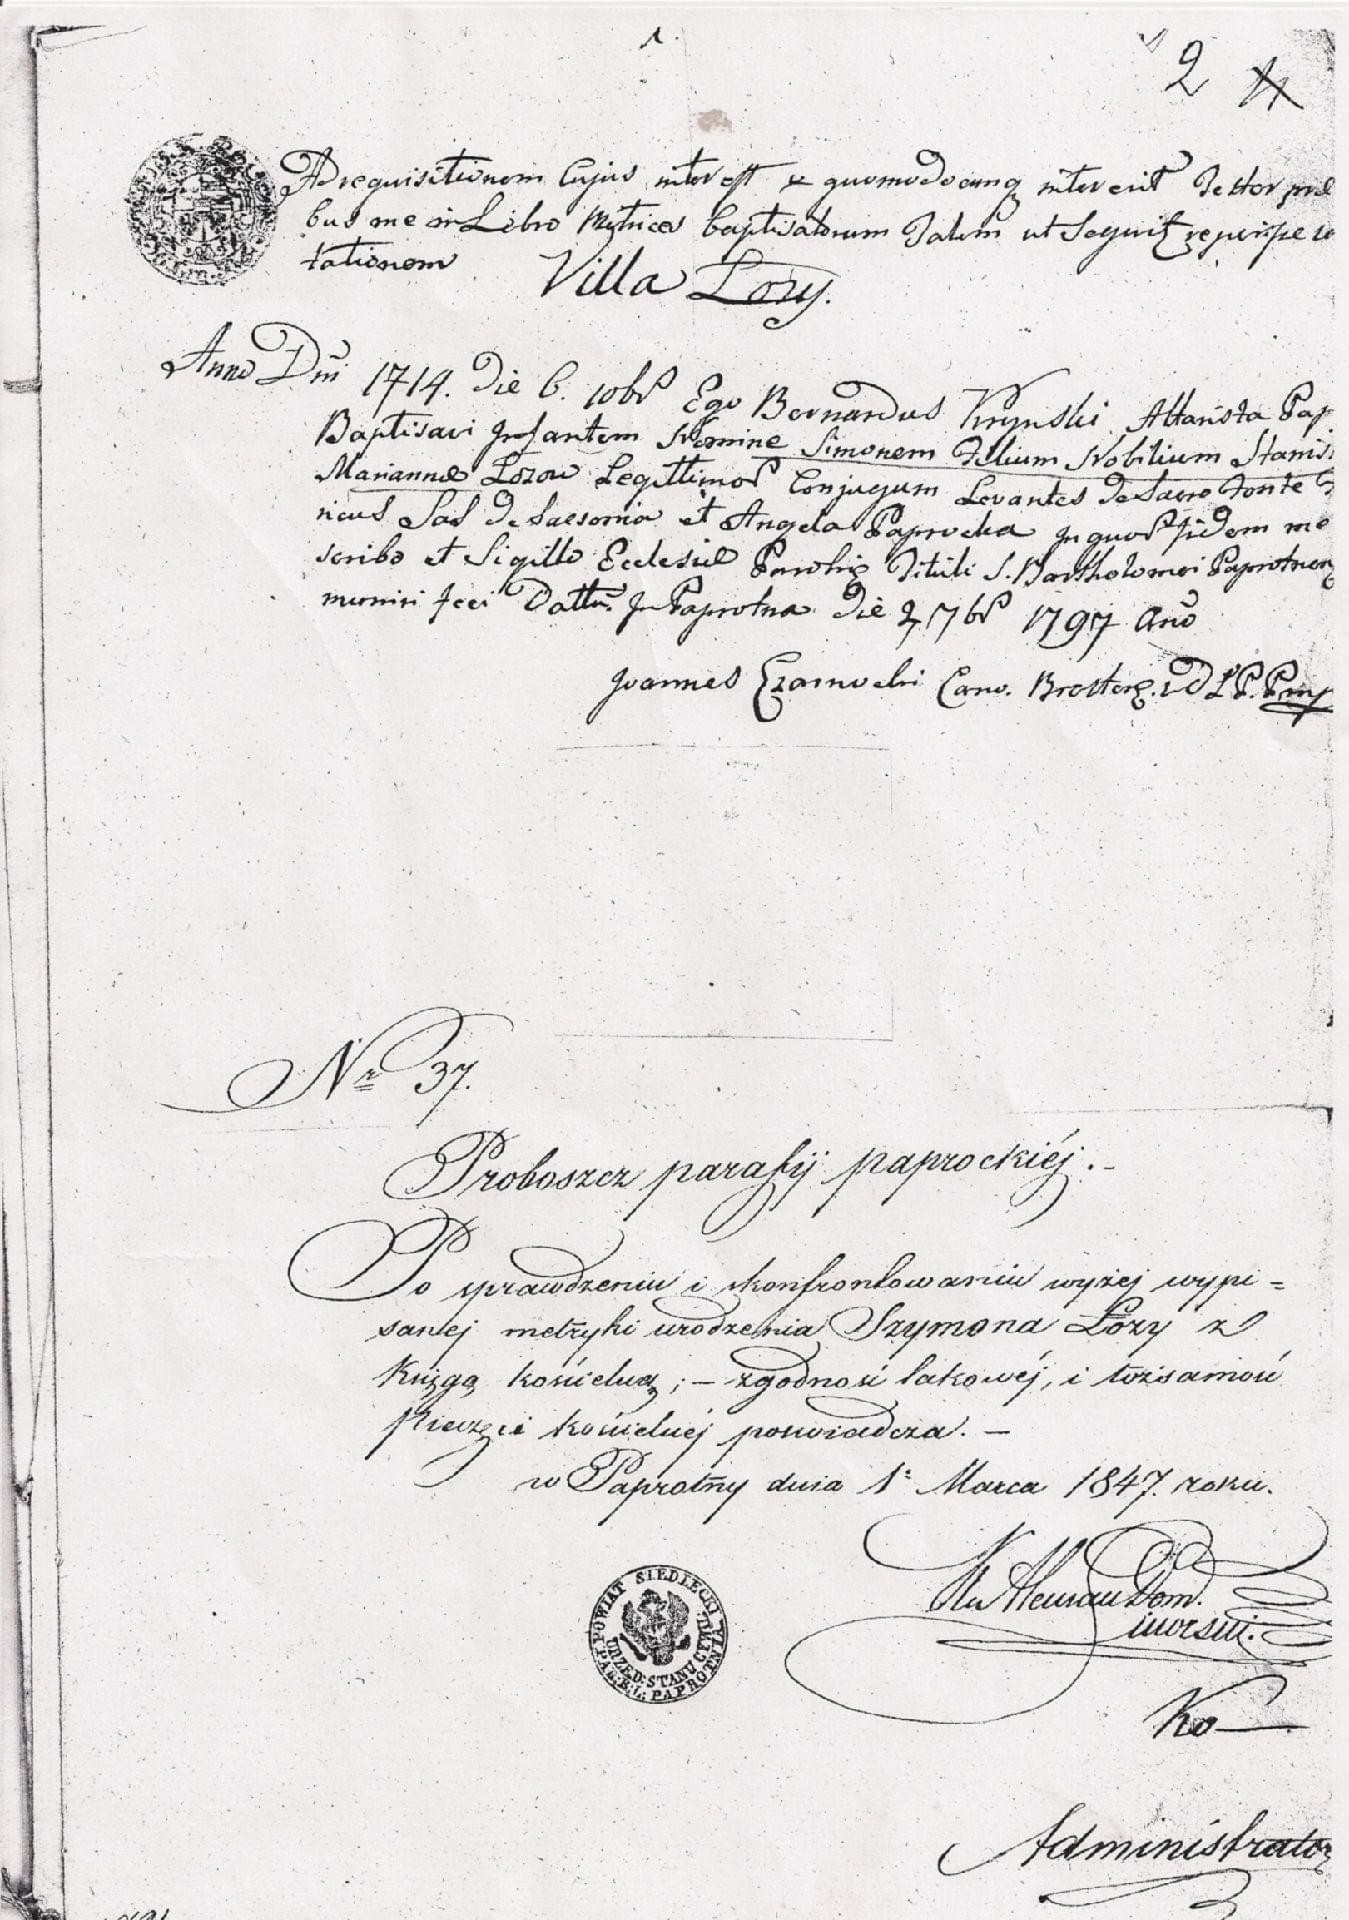 1.
2 4
Ad requisitionem Cujus interest & quomodocunq intererit Testor prae
bus me in Libro Metrices baptisatorum Talem ut Sequit reperisse
tationem Villa Łozy.
Anno Dni 1714. Die 6. 10bris Ego Bernardus Krynski Altarista Pap
Baptisavi Infantem Nomine Simonem Filium Nobilium Stanis
Mariannae Łozow Legittimor Conjugum Levantes de Sacro Fonte
nicus Sas de Sassonia et Angela Paprocka In quor Fidem me
scribo et Sigillo Ecclesiae Parohię Tituli S. Bartholomei Paprotnen
muniri feci Datt. In Paprotna Die 2 7bris 1797 Ano
Joannes Czarnocki Cano. P. Pmp
Nr 37.
Proboszcz parafij paprockiéj.-
Po sprawdzeniu i skonfrontowaniu wyżej wypi=
sanej metryki urodzenia Szymona Łozy z
Księgą kościelną; – zgodność takowéj, i tożsamość
Pieczęci kościelnéj poswiadcza. –
w Paprotny dnia 1. Marca 1847. roku.
POWIAT SIEDLECKI
URZĘD: STANU CYWIL
PAR: PAPROTNA
Administrator